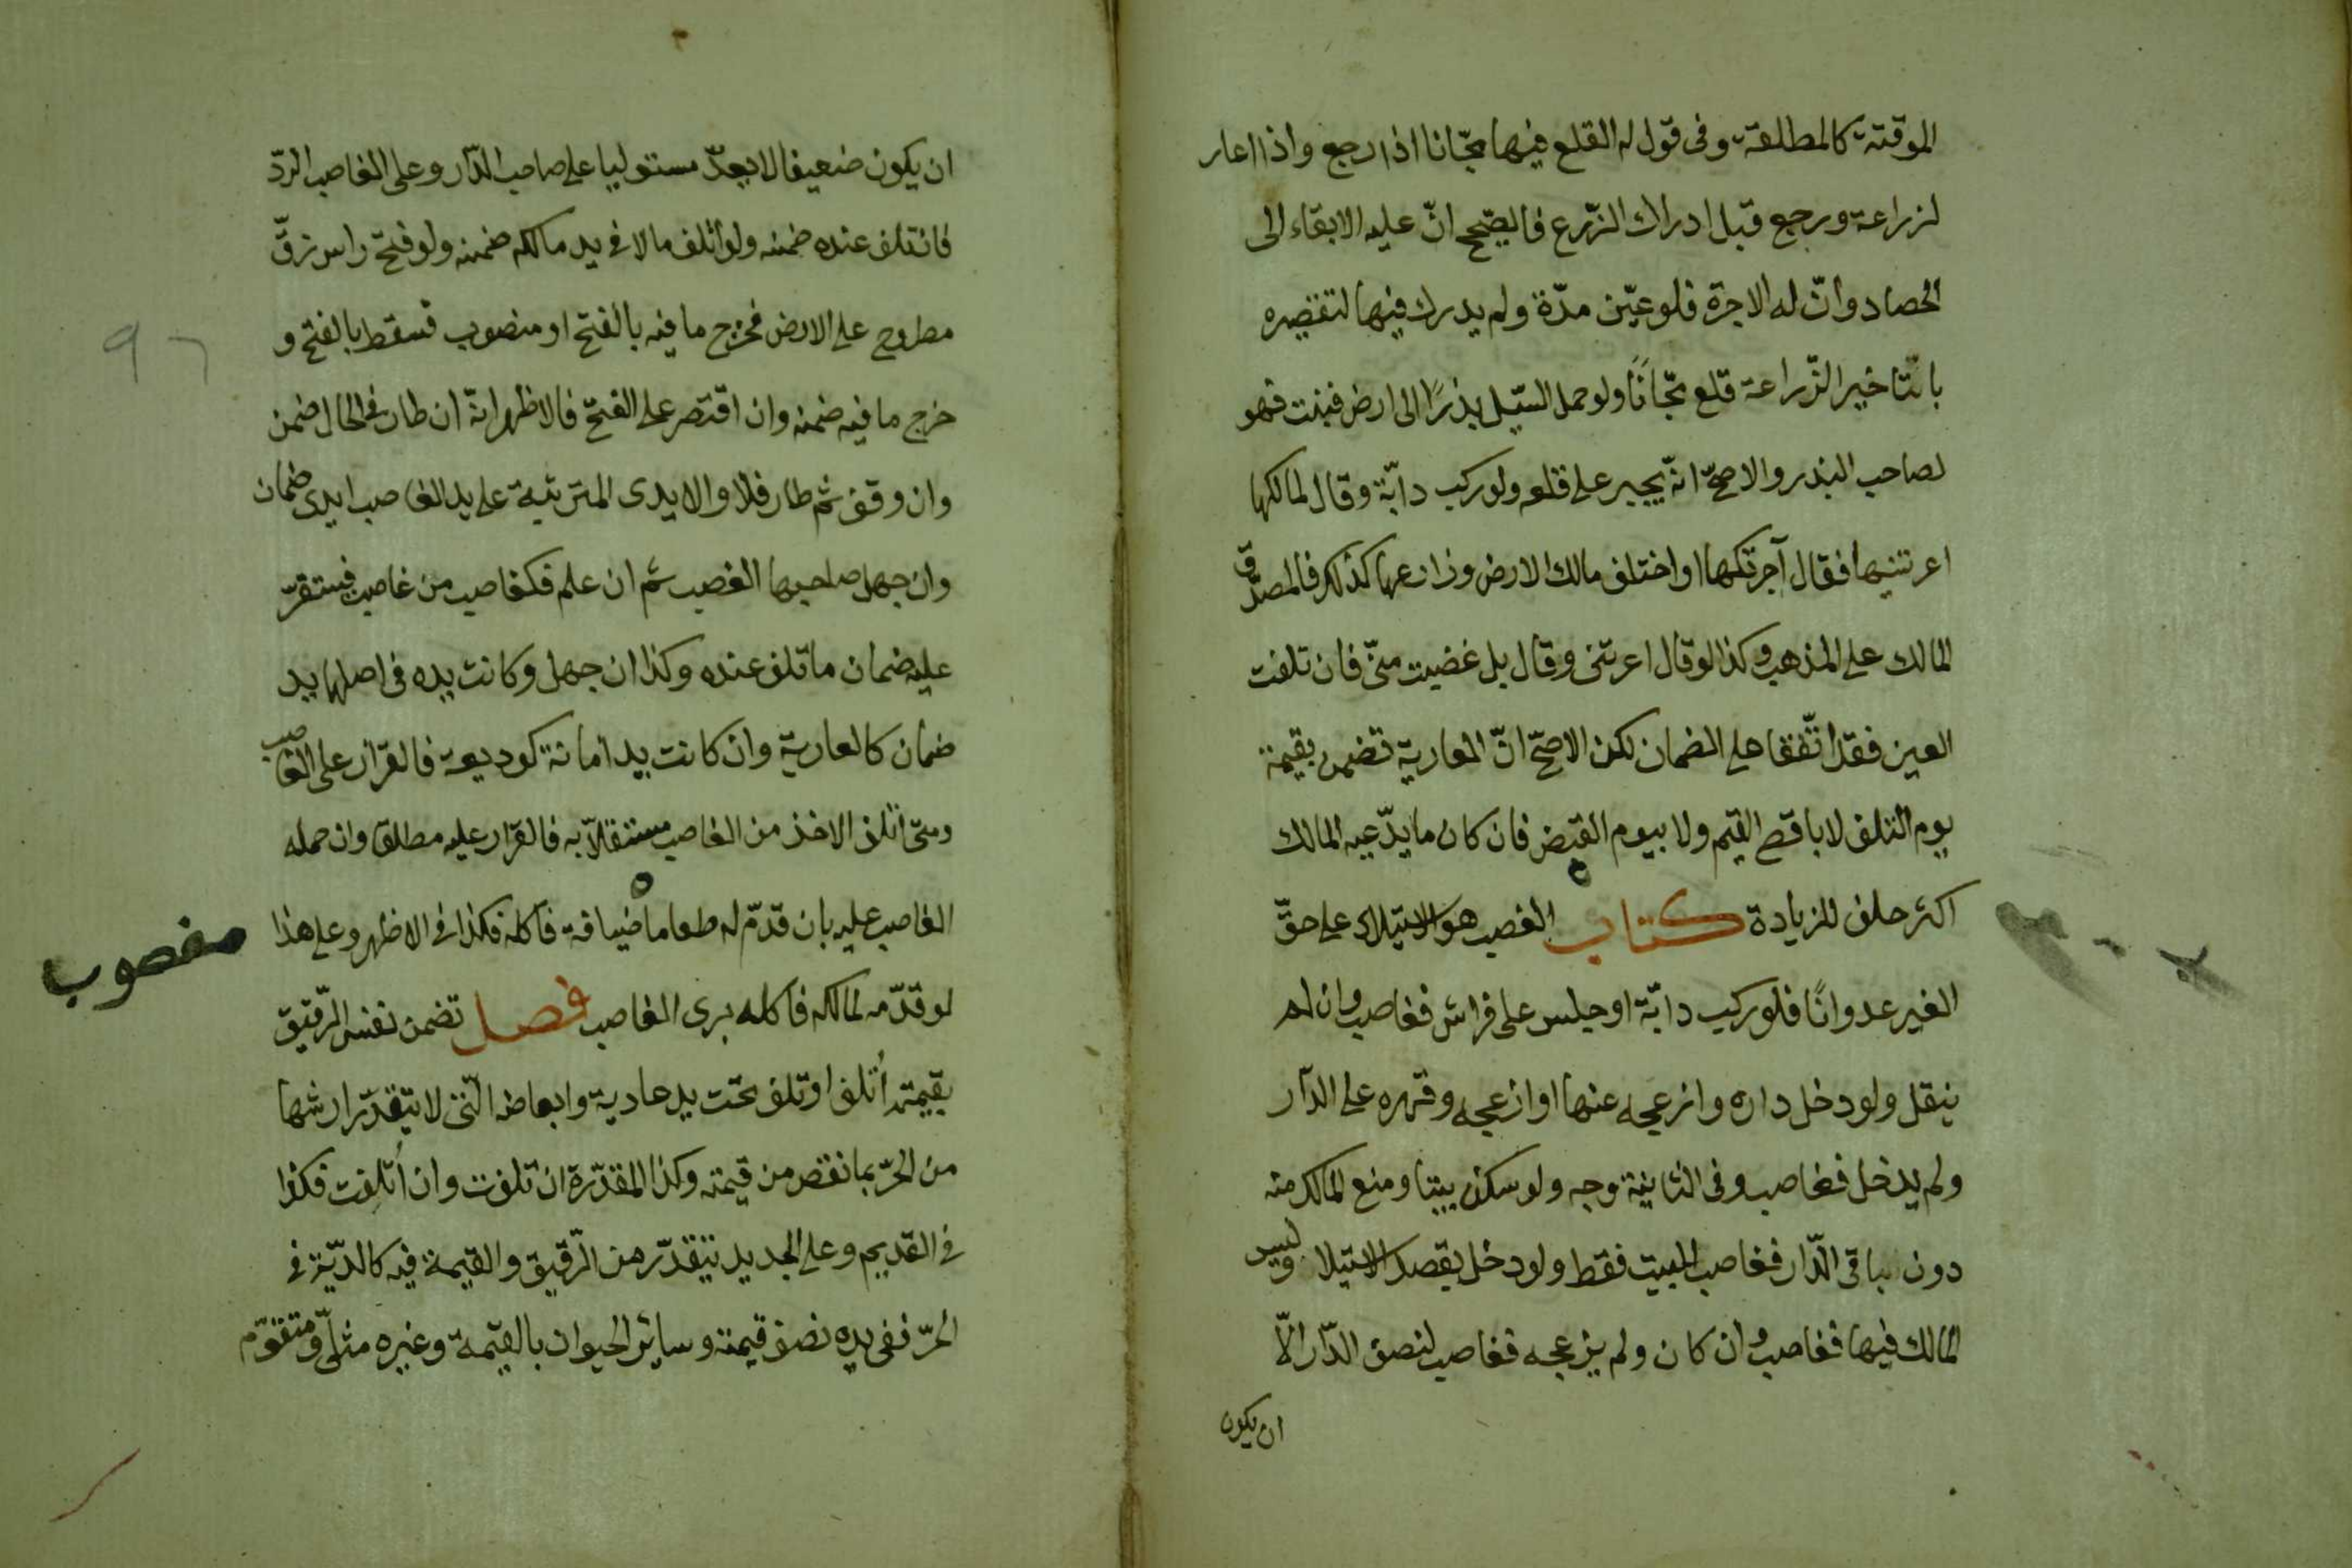 الموقتة كالمطلقة وفى قول له القلع فيها مجّانا اذا رجع واذا اعار
لزراعة ورجع قبل ادراك الزّرع فالصّحيح انّ عليه الابقاء الى
الحصاد وانّ له الاجرة فلو عيّن مدّة ولم يدرك فيها لتقصيره
بالتّاخير الزّراعة قلع مجّانًا ولو حمل السّيل بذرًا الى ارض فنبت فهو
لصاحب البذر والاصحّ انّه يجبر على قلعه ولو ركب دابّة وقال لمالكها
اعرتنيها فقال آجرتكها او اختلف مالك الارض وزارعها كذلك فالمصدّق
المالك على المذهب وكذا لو قال اعرتنى وقال بل غصبت منّى فان تلفت
العين فقد اتّفقا على الضمان لكن الاصحّ انّ العاريّة تضمن بقيمة
يوم التلف لا باقصى القيم ولا بيوم القبض فان كان ما يدّعيه المالك
اكثر حلف للزيادة كتاب الغصب هو الاستيلاء على حقّ
الغير عدوانًا فلو ركب دابّة او جلس على فراش فغاصب وان لم
ينقل ولو دخل داره وازعجه عنها او ازعجه وقهره على الدّار
ولم يدخل فغاصب وفى الثانية وجه ولو سكن بيتا ومنع المالك منه
دون باقى الدّار فغاصب للبيت فقط ولو دخل بقصد الاستيلا وليس
المالك فيها فغاصب وان كان ولم يزعجه فغاصب لنصف الدّار الّا
ان يكون
ان يكون ضعيفا لا يعدّ مستوليا على صاحب الدّار وعلى الغاصب الردّ
فان تلف عنده ضمنه ولو اتلف مالا فى يد مالكه ضمنه ولو فتح راس زقّ
مطروح على الارض فخرج ما فيه بالفتح او منصوب فسقط بالفتح و
خرج ما فيه ضمنه وان اقتصر على الفتح فالاظهر انّه ان طار فى الحال ضمن
وان وقف ثم طار فلا والايدى المترتبة على يد الغاصب ايدى ضمان
وان جهل صاحبها الغصب ثم ان علم فكغاصب من غاصب فيستقرّ
عليه ضمان ما تلف عنده وكذا ان جهل وكانت يده فى اصلها يد
ضمان كالعاريّة وان كانت يد امانة كوديعة فالقرار على الغاصب
ومتى اتلف الاخذ من الغاصب مستقلاّ به فالقرار عليه مطلقا وان حمله
الغاصب عليه بان قدّم له طعاما ضيافة فاكله فكذا فى الاظهر وعلى هذا
مغصوب
لو قدّمه لمالكه فاكله برى الغاصب فصل تضمن نفس الرّقيق
بقيمته أتلف او تلف تحت يد عادية وابعاضه الّتى لا يتقدّر ارشها
من الحرّ بما نقص من قيمته وكذا المقدّرة ان تلفت وان أتلفت فكذا
فى القديم وعلى الجديد يتقدّر من الرّقيق والقيمة فيه كالديّة فى
الحرّ ففى يده نصف قيمته وساير الحيوان بالقيمة وغيره مثلىّ ومتقوّم